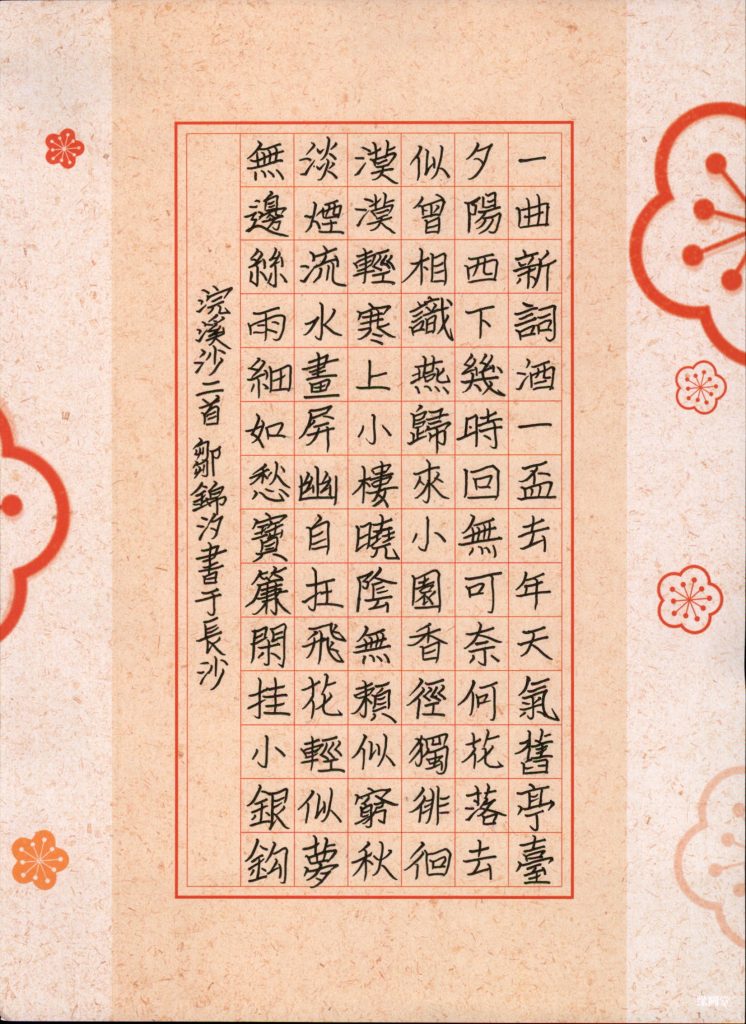 一曲新詞酒一盃去年天氣舊亭臺
夕陽西下幾時回無可奈何花落去
似曾相識燕歸來小園香徑獨徘徊
漠漠輕寒上小樓曉陰無賴似窮秋
淡煙流水畫屏幽自在飛花輕似夢
無邊絲雨細如愁寶簾閑挂小銀鈎
浣溪沙二首 鄒錦汐書于長沙